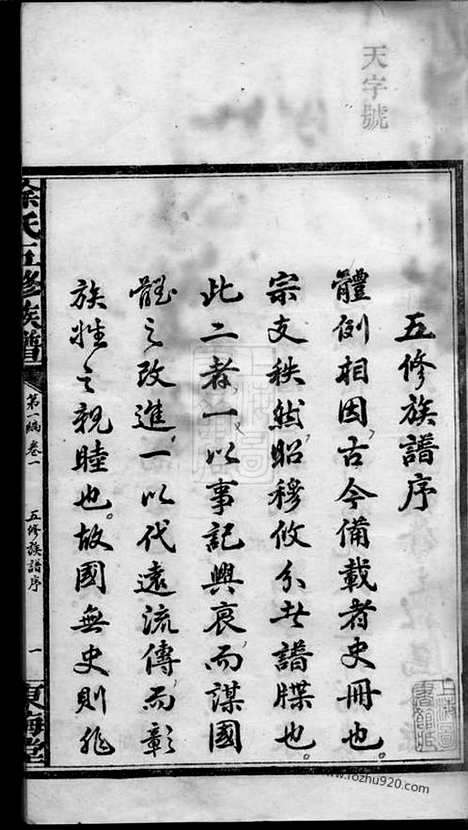 天字號
五修族譜序
體例相因，古今備載者史冊也。
宗支秩然，昭穆攸分者譜牒也。
此二者，一以事記興衰，而謀國
體之改進，一以代遠流傳，而彰
族姓之親睦也。故國無史則非
徐氏五修族譜
第一編 卷一
五修族譜序
一
東海堂
www.rozhu920.com